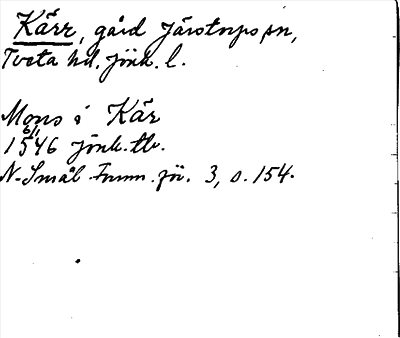 Kärr, gård Järstorps sn,
Tveta hd. Jönk. l.
Mons i Kär
1546 6/1 Jönk. tb.
N. Smål. Fornm. för. 3, s. 154.